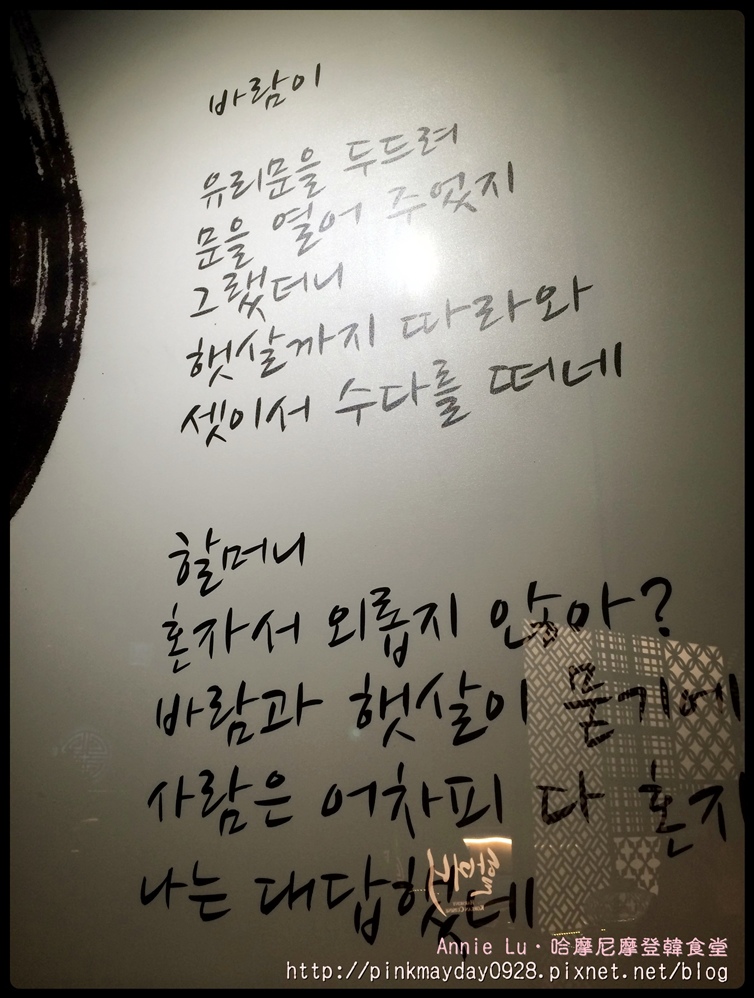 바람이
유리문을 두드려
문을 열어 주었지
그랬더니
햇살까지 따라와
셋이서 수다를 떠네
할머니
혼자서 외롭지 않아?
바람과 햇살이 묻기에
사람은 어차피 다 혼자
나는 대답했네
Annie Lu・哈摩尼摩登韓食堂
http://pinkmayday0928.pixnet.net/blog